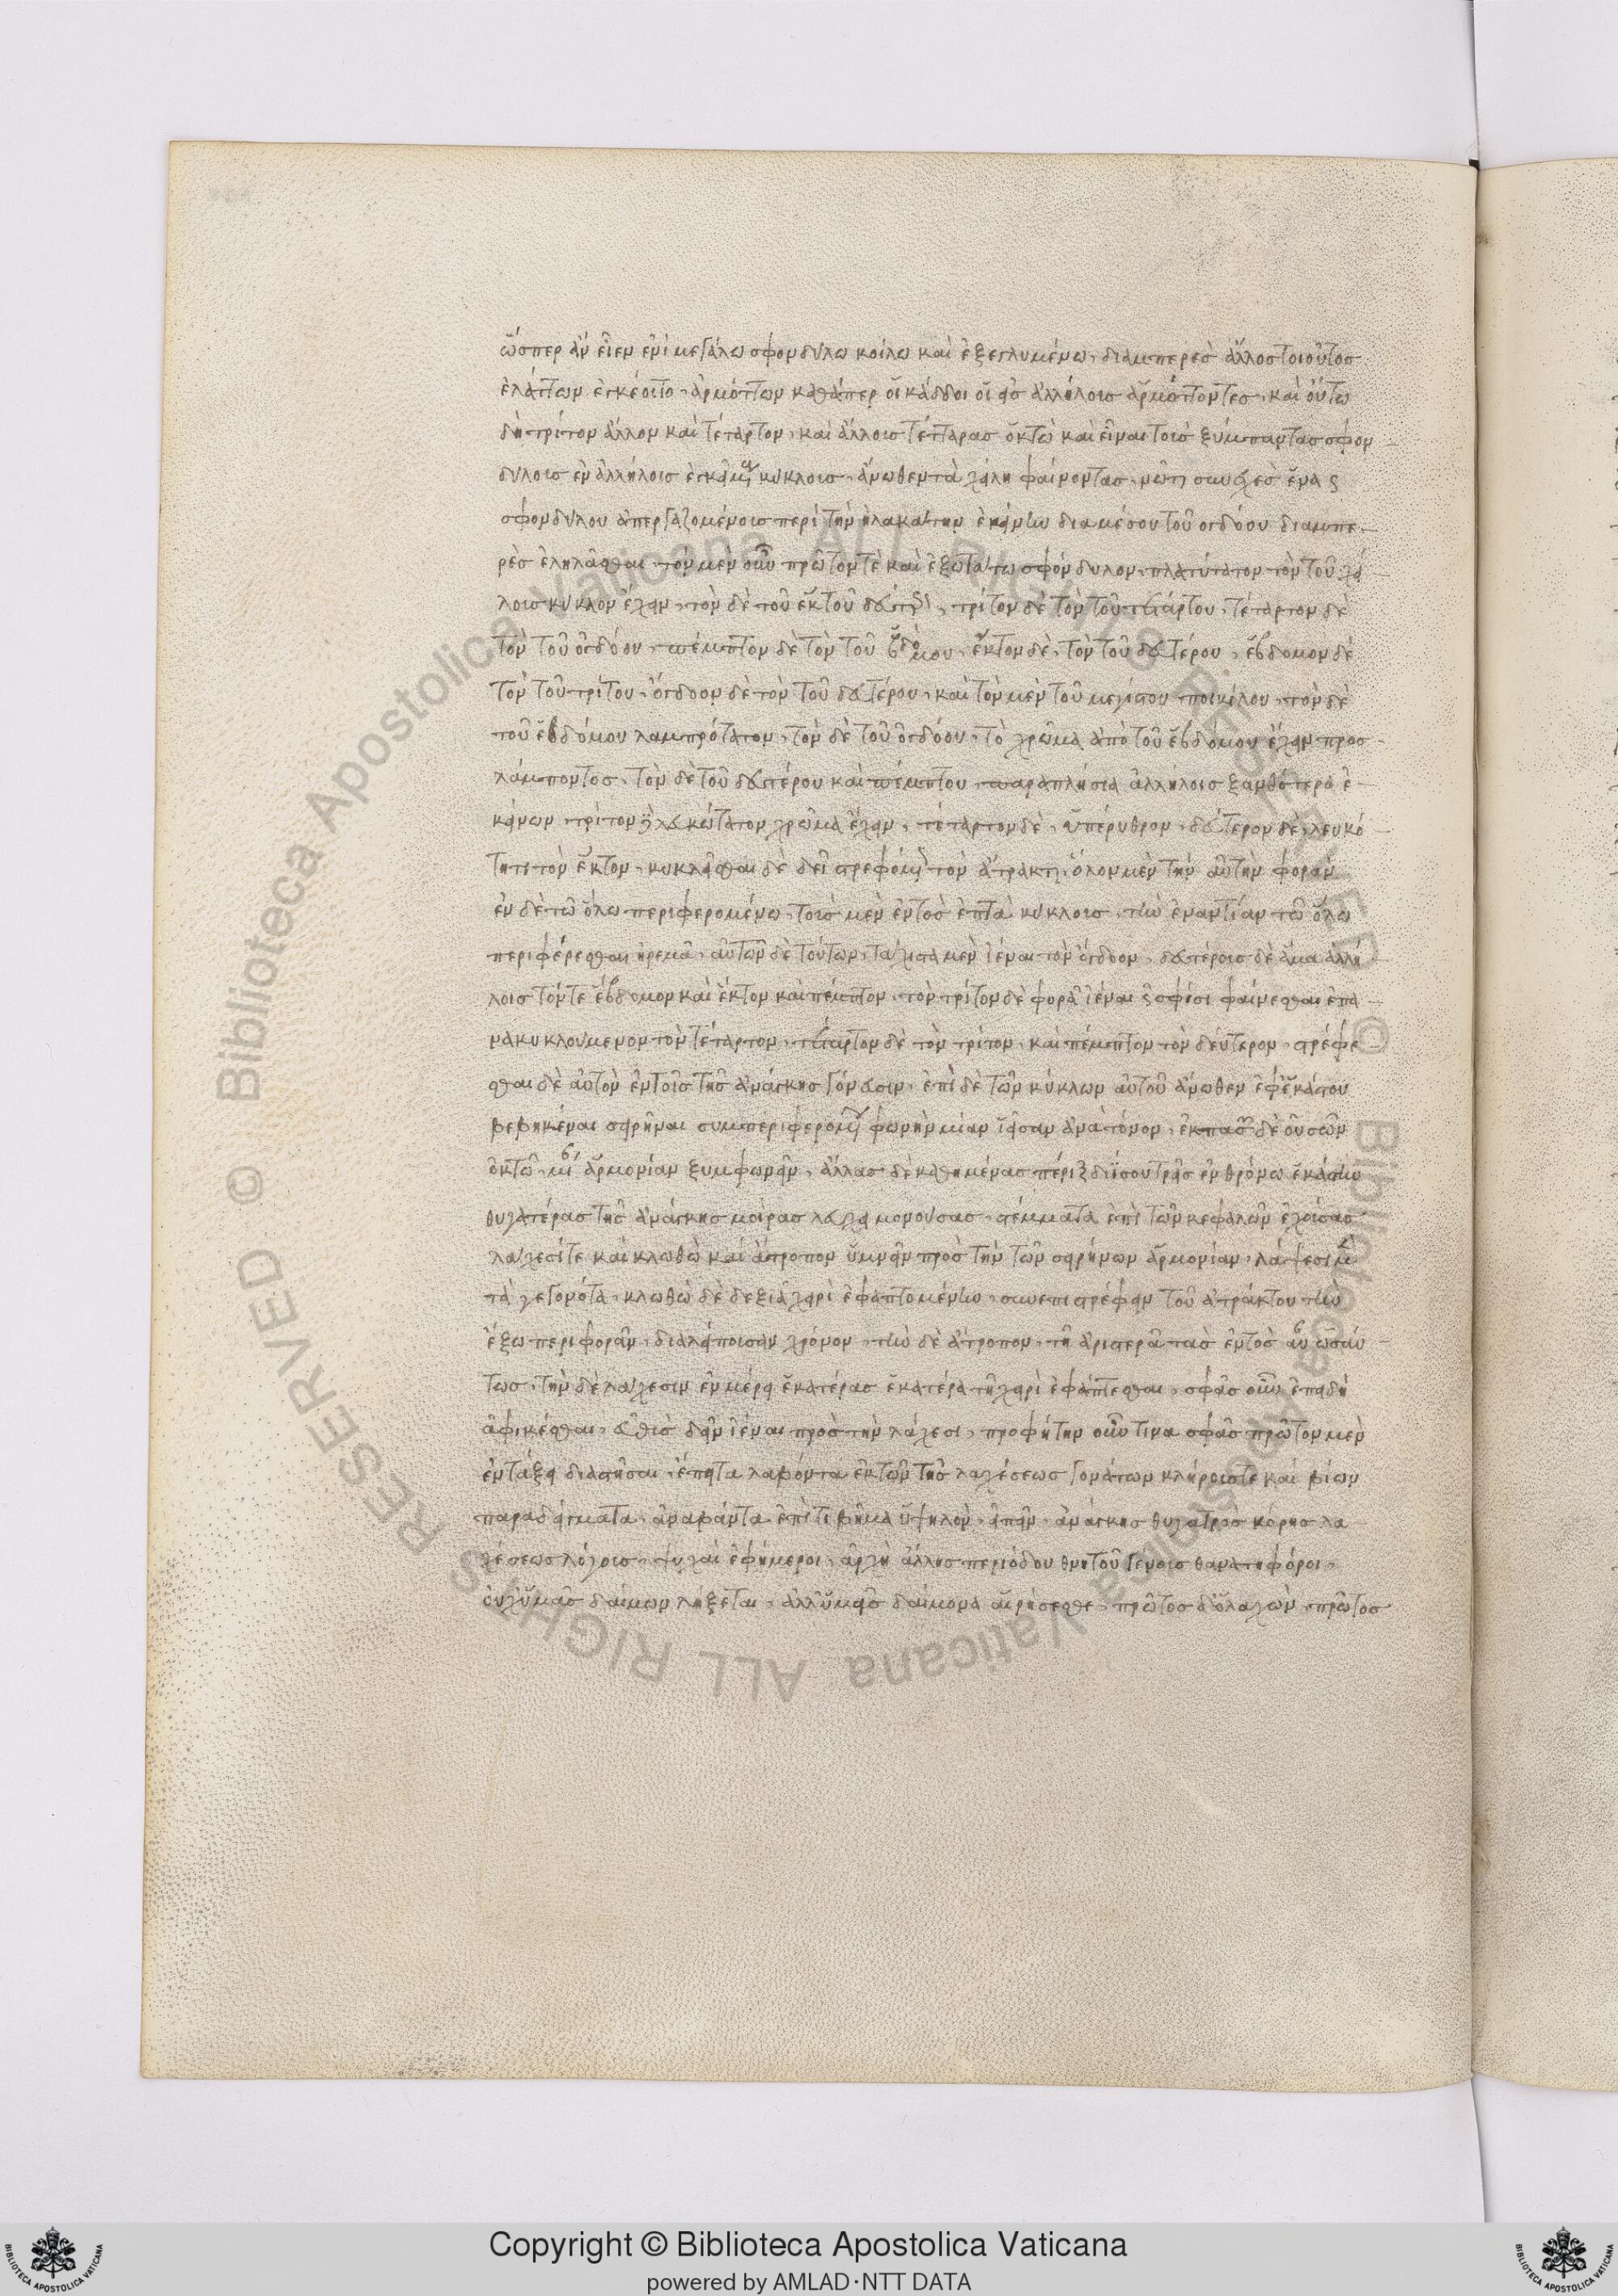 ὥσπερ ἂν εἶεν ἐνὶ μεγάλω σφονδύλω κοίλω καὶ ἐξεγλυμένω, διαμπερὲς ἄλλος τοιοῦτος
ἐλάττων ἐγκέοιτο, ἁρμόττων καθάπερ οἱ κάδδοι οἱ εἰς ἀλλήλους ἁρμόττοντες, καὶ οὕτω
δὴ τρίτον ἄλλον καὶ τέταρτον, καὶ ἄλλους τέτταρας ὀκτὼ καὶ εἶναι τοὺς ξύμπαντας σφον
δύλους ἐν ἀλλήλοις ἐγκειμένους κύκλους, ἄνωθεν τὰ χείλη φαίνοντας, νῶτον συνεχὲς ἑνὸς
σφονδύλου ἀπεργαζομένους περὶ τὴν ἠλακάτην ἐκείνην διαμέσου τοῦ ὀγδόου διαμπε
ρὲς ἐληλᾶσθαι, τὸν μὲν οὖν πρῶτόν τε καὶ ἐξωτάτω σφόνδυλον, πλατύτατον τὸν τοῦ χεί
λους κύκλον ἔχειν, τὸν δὲ τοῦ ἕκτου δεύτερον, τρίτον δὲ τὸν τοῦ τετάρτου, τέταρτον δὲ
τὸν τοῦ ὀγδόου, πέμπτον δὲ τὸν τοῦ ἑβδόμου, ἕκτον δὲ, τὸν τοῦ δευτέρου, ἕβδομον δὲ
τὸν τοῦ τρίτου, ὄγδοον δὲ τὸν τοῦ δευτέρου, καὶ τὸν μὲν τοῦ μεγίστου ποικίλου, τὸν δὲ
τοῦ ἑβδόμου λαμπρότατον, τὸν δὲ τοῦ ὀγδόου, τὸ χρῶμα ἀπὸ τοῦ ἑβδόμου ἔχειν προσ
λάμποντος, τὸν δὲ τοῦ δευτέρου καὶ πέμπτου, παραπλήσια ἀλλήλοις ξανθότερα ἐ
κείνων, τρίτον λευκώτατον χρῶμα ἔχειν, τέταρτον δὲ, ὑπέρυθρον, δεύτερον δὲ, λευκό
τητι τὸν ἕκτον, κυκλεῖσθαι δὲ δεῖ στρεφόμενον τὸν ἄτρακτον, ὅλον μὲν τὴν αὐτὴν φορὰν
ἐν δὲ τῶ ὅλω περιφερομένω, τοὺς μὲν ἐντὸς ἑπτὰ κύκλους, τὴν ἐναντίαν τῶ ὅλω
περιφέρεσθαι ἠρεμα, αὐτῶν δὲ τούτων, τάχιστα μὲν ἰέναι τὸν ὄγδοον, δευτέρους δὲ ἅμα ἀλλή
λοις τόν τε ἕβδομον καὶ ἕκτον καὶ πέμπτον, τὸν τρίτον δὲ φορᾶ ἰέναι ὡς σφίσι φαίνεσθαι ἐπα
νακυκλούμενον τὸν τέταρτον, τέταρτον δὲ τὸν τρίτον, καὶ πέμπτον τὸν δεύτερον, στρέφε
σθαι δὲ αὐτὸν ἐν τοῖς τῆς ἀνάγκης γόνασιν, ἐπὶ δὲ τῶν κύκλων αὐτοῦ ἄνωθεν ἐφ' ἑκάστου
βεβηκέναι σειρῆναι συμπεριφερομένην φωνὴν μίαν ἱεῖσαν ἀνὰ τόνον, ἐκ πασῶν δὲ οὐσῶν
ὀκτὼ, μίαν ἁρμονίαν ξυμφωνεῖν, ἄλλας δὲ καθημένας πέριξ δι' ἴσου τρεῖς ἐν θρόνω ἑκάστην
θυγατέρας τῆς ἀνάγκης μοίρας λευχειμονούσας, στέμματα ἐπὶ τῶν κεφαλῶν ἐχούσας
λάχεσίν τε καὶ κλωθὼ καὶ ἄτροπον ὑμνεῖν πρὸς τὴν τῶν σειρήνων ἁρμονίαν, λάχεσιν μὲν
τὰ γεγονότα, κλωθὼ δὲ δεξιᾶ χειρὶ ἐφαπτομένην, συνεπιστρέφειν τοῦ ἀτράκτου τὴν
ἔξω περιφορὰν, διαλείπουσαν χρόνον, τὴν δὲ ἄτροπον, τῆ ἀριστερᾶ τὰς ἐντὸς αὖ ὡσαύ
τως, τὴν δὲ λάχεσιν ἐν μέρει ἑκατέρας ἑκατέρα τῆ χειρὶ ἐφάπτεσθαι, σφᾶς οὖν ἐπειδὴ
ἀφικέσθαι, εὐθὺς δεῖν ἰέναι πρὸς τὴν λάχεσιν, προφήτην οὖν τινα σφᾶς πρῶτον μὲν
ἐν τάξει διαστῆσαι, ἔπειτα λαβόντα ἐκ τῶν τῆς λαχέσεως γονάτων κλήρους τε καὶ βίων
παραδείγματα, ἀναβάντα ἐπί τι βῆμα ὑψηλὸν, εἰπεῖν, ἀνάγκης θυγατρὸς κόρης λα
χέσεως λόγος, ψυχαὶ ἐφήμεροι, ἀρχὴ ἄλλης περιόδου θνητοῦ γένους θανατηφόροι,
οὐχ ὑμᾶς δαίμων λήξεται, ἀλλ' ὑμεῖς δαίμονα αἱρήσεσθε, πρῶτος δ' ὁ λαχὼν, πρῶτος